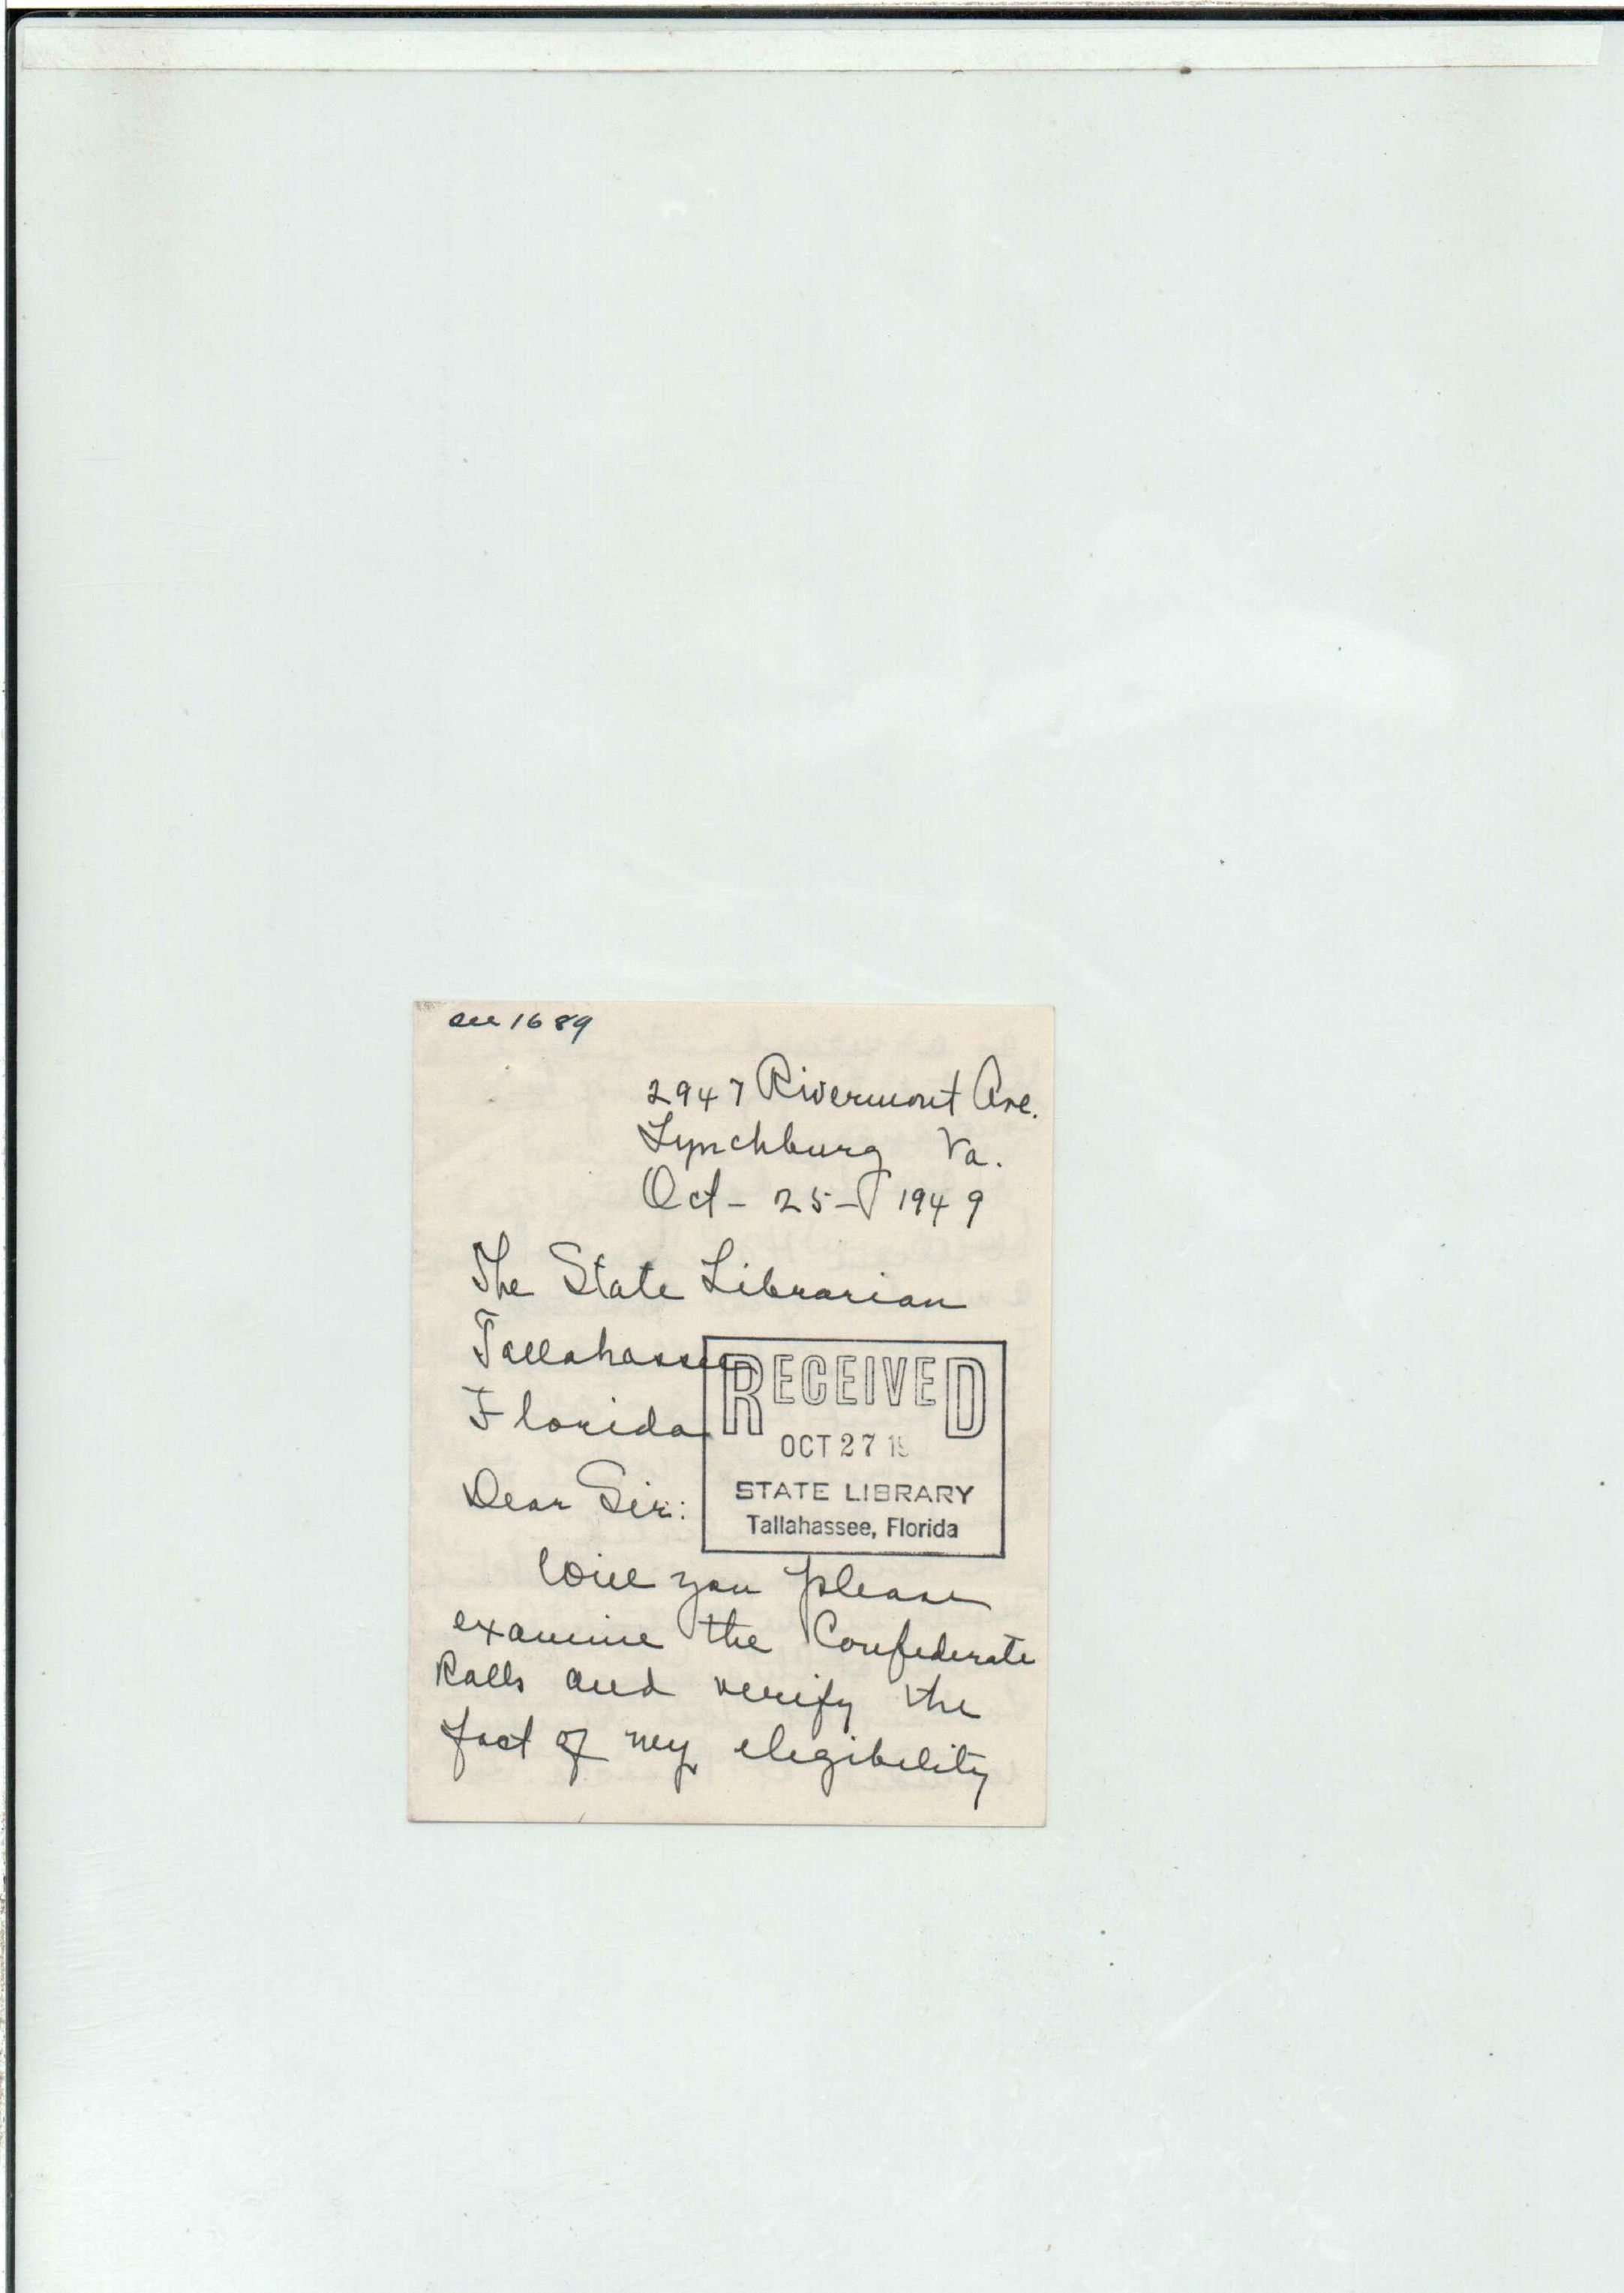 see 1689
2947 Rivermont Ave.
Lynchburg Va.
Oct - 25 - 1949
The State Librarian
Tallahassee
Florida
RECEIVED
OCT 27 19
STATE LIBRARY
Tallahassee, Florida
Dear Sir:
Will you please
examine the Confederate
Rolls and verify the
fact of my elegibility